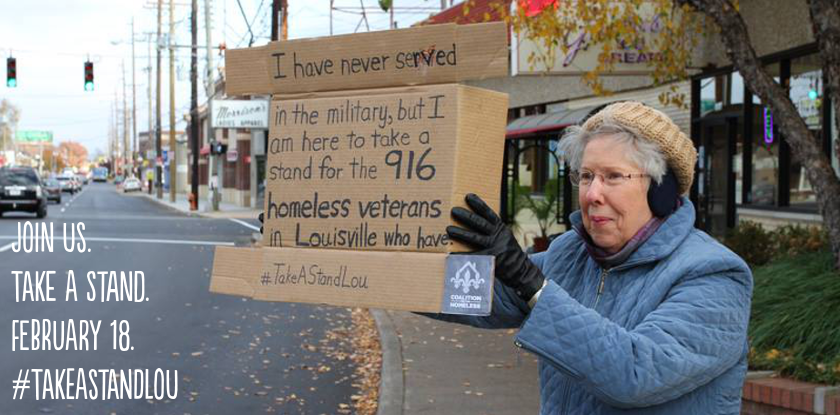 I have never served
in the military, but I
am here to take a
stand for the 916
homeless veterans
in Louisville who have.
#TakeAStandLou
COALITION
HOMELESS
Morrison's
LADIES APPAREL
JOIN US.
TAKE A STAND.
FEBRUARY 18.
#TAKEASTANDLOU